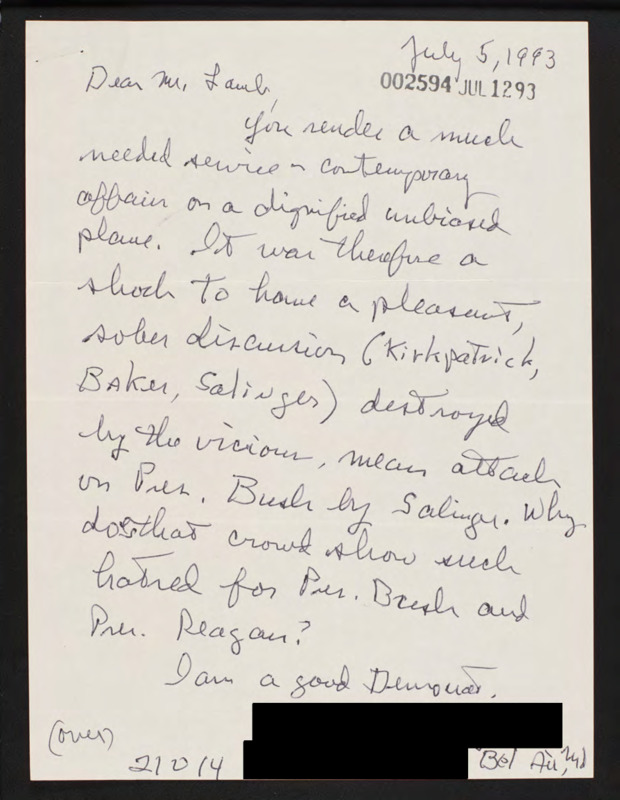 July 5, 1993
Dear Mr. Lamb,
002594 JUL 12 93
You render a much
needed service - contemporary
affairs on a dignified unbiased
plane. It was therefore a
shock to have a pleasant,
sober discussion (Kirkpatrick,
Baker, Salinger) destroyed
by the vicious, mean attack
on Pres. Bush by Salinger. Why
does that crowd show such
hatred for Pres. Bush and
Pres. Reagan?
I am a good Democrat.
(over)
21014
Bel Air, Md